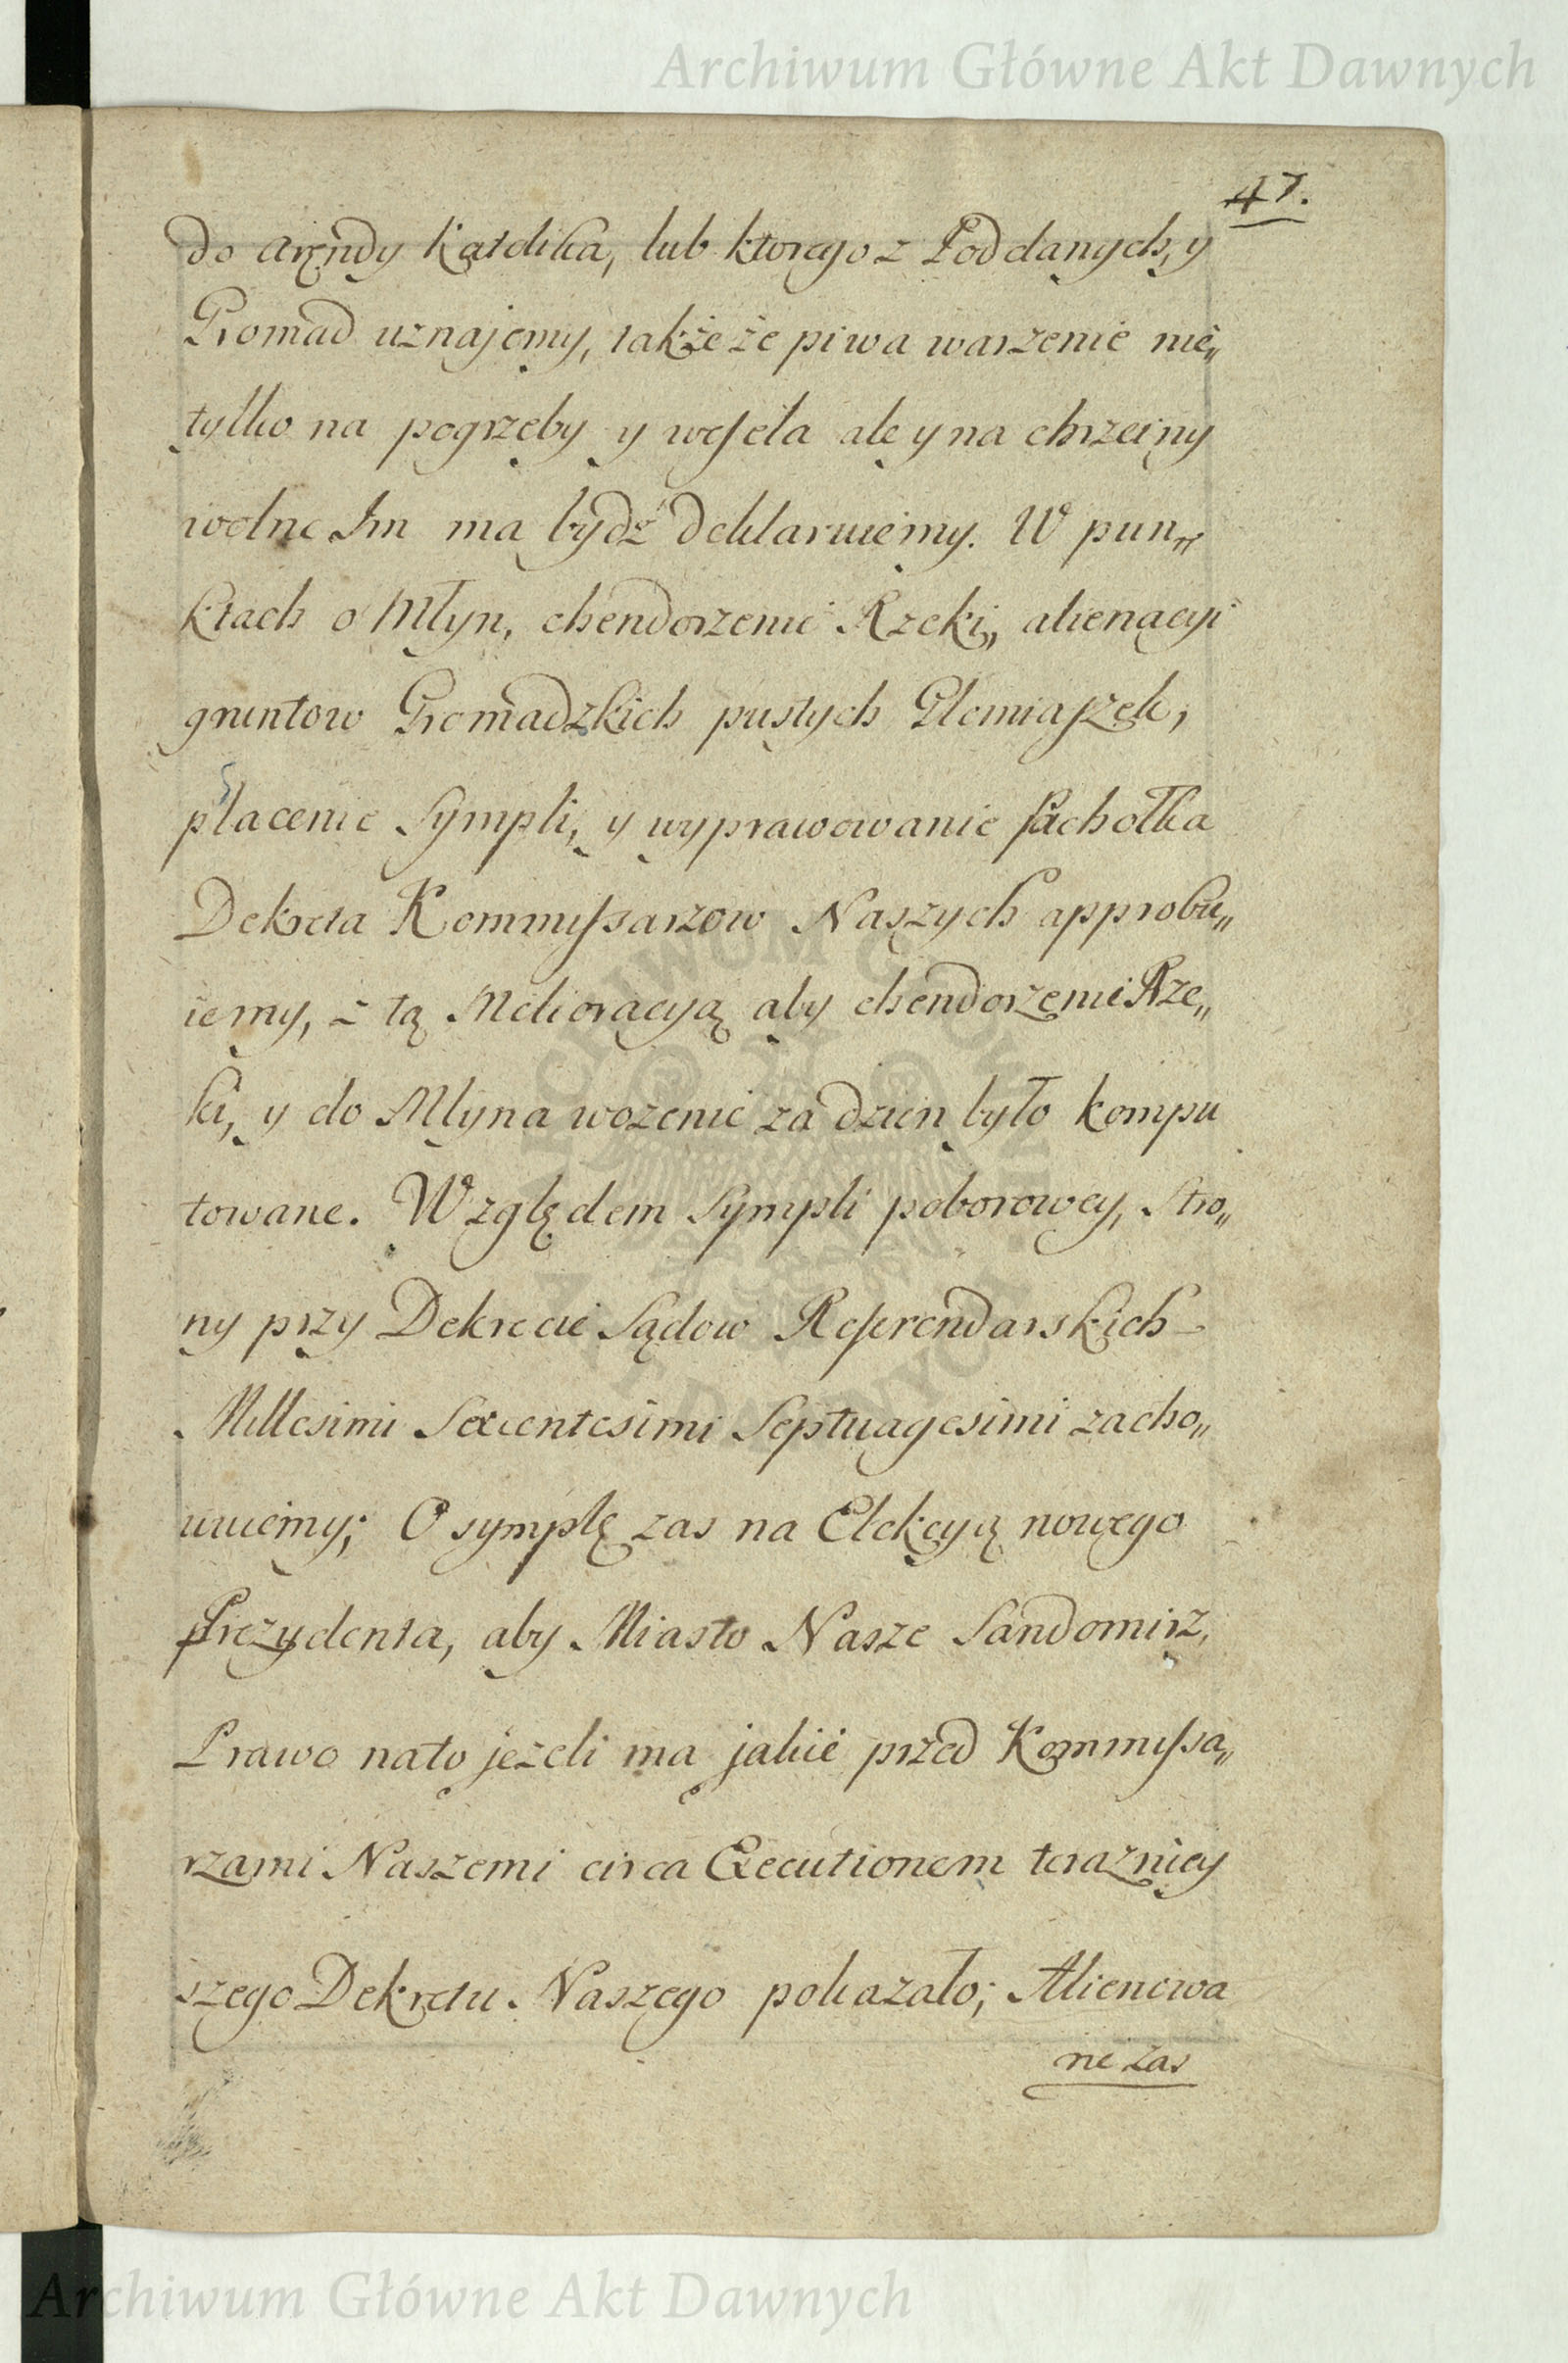 Archiwum Główne Akt Dawnych
47.
do arendy Katolika, lub ktorego z Poddanych, y
Gromad uznajemy, także że piwa warzenie nie„
tylko na pogrzeby y wesela ale y na chrzciny
wolne Im ma bydź deklaruiemy. W pun„
ktach o Młyn, chendorzenie Rzeki„ alienacyi
gruntow Gromadzkich pustych Plemiaszek,
płacenie Sympli, y wyprawowanie Pachołka
Dekreta Kommissarzow Naszych approbu„
iemy, z tą Melioracyą aby chendorzenie Rze„
ki, y do Młyna wozenie za dzien było kompu
towane. Względem Sympli poborowey, Stro„
ny przy Dekrecie Sądow Referendarskich
Millesimi Sexcentesimi Septuagesimi zacho„
wuiemy; O symplę zas na Elekcyą nowego
Prezydenta, aby Miasto Nasze Sandomirz,
Prawo nato jeżeli ma jakie przed Kommissa„
rzami Naszemi circa Executionem terazniey
szego Dekretu Naszego pokazało; Alienowa
nie zas
Archiwum Główne Akt Dawnych